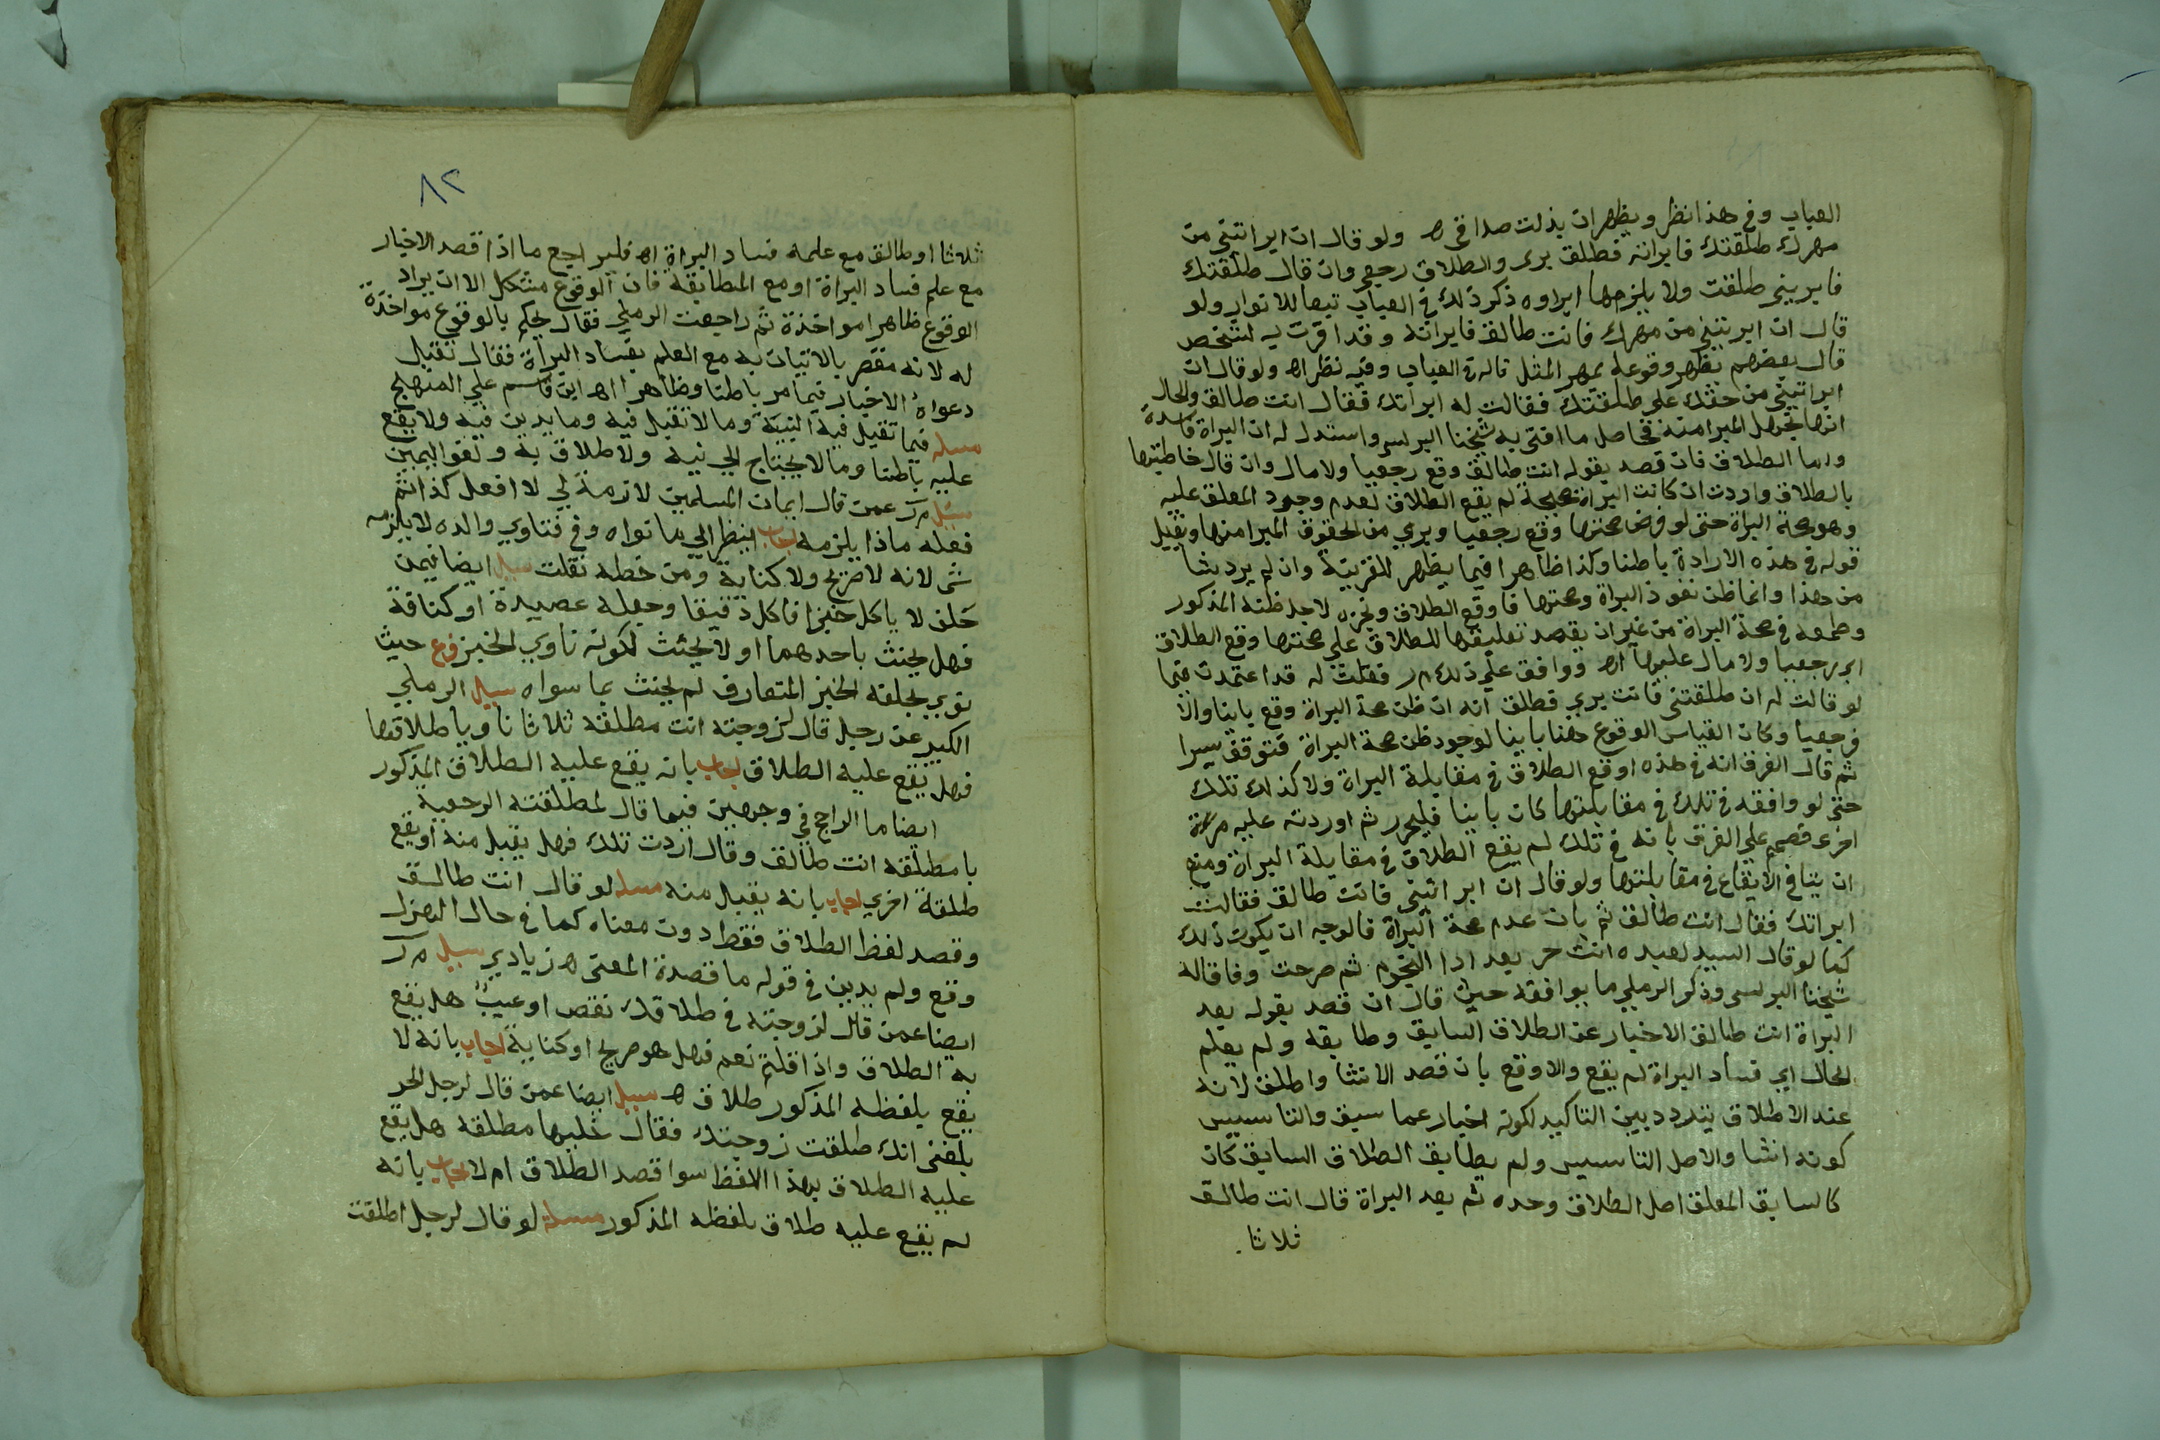 العباب وفي هذا نظر ويظهر ان بذلت صداقي اه ولو قال ان ابراتيني من
مهرك طلقتك فابرانه فطلق برى والطلاق رجعي وان قال طلقتك
فابريني طلقت ولا يلزمها ابراوه ذكر ذلك في العباب تبعا للانوار ولو
قال ان ابريتني من مهرك فانت طالق فابراته وقد اقرت به لشخص
قال بعضهم يظهر وقوعه بمهر المثل قاله في العباب وفيه نظر اه ولو قال ان
ابراتيني من حقك علي طلقتك فقالت له ابراتك فقال انت طالق والحال
انها تجهل المبرا منه فحاصل ما افتى به شيخنا البرلسي واستدل له ان البراة فاسدة
واما الطلاق فان قصد بقوله انت طالق وقع رجعيا ولا مال وان قال خاطبتها
بالطلاق واردت ان كانت البراة صحيحة لم يقع الطلاق لعدم وجود المعلق عليه
وهو صحة البراة حتى لو فرض صحتها وقع رجعيا وبري من الحقوق المبرا منها ويقبل
قوله في هذه الارادة باطنا وكذا ظاهرا فيما يظهر للقرينة وان لم يرد شيا
من هذا وانما ظن نفوذ البراة وصحتها فاوقع الطلاق ونجزه لاجل ظنه المذكور
وطمعه في صحة البراة من غير ان يقصد تعليقها للطلاق على صحتها وقع الطلاق
ايضا رجعيا ولا مال عليها اه ووافق على ذلك مر فقلت له قد اعتمدت فيما
لو قالت له ان طلقتني فانت بري فطلق انه ان ظن صحة البراة وقع باينا والا
فرجعيا وكان القياس الوقوع هنا باينا لوجود ظن صحة البراة فتوقف يسيرا
ثم قال الفرق انه في هذه اوقع الطلاق في مقابلة البراة ولا كذلك تلك
حتى لو وافقه في تلك في مقابلتها كان باينا فليحرر ثم اوردته عليه مرة
اخرى فصمم على الفرق بانه في تلك لم يقع الطلاق في مقابلة البراة ومنع
ان ينافي الايقاع في مقابلتها ولو قال ان ابراتيني فانت طالق فقالت
ابراتك فقال انت طالق ثم بان عدم صحة البراة فالوجه ان يكون ذلك
كما لو قال السيد لعبده انت حر بعد ادا النجوم ثم خرجت وفاقا له
شيخنا البرلسي وذكر الرملي ما يوافقه حيث قال ان قصد بقوله بعد
البراة انت طالق الاخبار عن الطلاق السابق وطابقه ولم يعلم
الحال اي فساد البراة لم يقع والا وقع بان قصد الانشا واطلق لانه
عند الاطلاق يتردد بين التاكيد لكونه اخبار عما سبق والتاسيس
كونه انشا والاصل التاسيس ولم يطابق الطلاق السابق كان
كالسابق المعلق اصل الطلاق وحده ثم بعد البراة قال انت طالق
ثلاثا
٨٢
ثلاثا او طالق مع علمه فساد البراة اه فليراجع ما اذا قصد الاخبار
مع علم فساد البراة او مع المطابقة فان الوقوع مشكل الا ان يراد
الوقوع ظاهرا مواخذة ثم راجعت الرملي فقال يحكم بالوقوع مواخذة
له لانه مقصر بالاتيان به مع العلم بفساد البراة فقال تقبل
دعواه الاخبار فيما مر باطنا وظاهرا اه ابن قاسم علي المنهاج
مسله فيما تقبل فيه النية وما لا تقبل فيه وما يدين فيه ولا يقع
عليه باطنا وما لا يحتاج الي نية ولا طلاق به ولغو اليمين
سيل مر عمن قال ايمان المسلمين لازمة لي لا افعل كذا ثم
فعله ماذا يلزمه اجاب ينظر الي ما نواه وفي فتاوي والده لا يلزمه
شي لانه لا صريح ولا كناية ومن خطه نقلت سيل ايضا فيمن
حلف لا ياكل خبزا فاكل دقيقا وجعله عصيدة او كنافة
فهل يحنث باحدهما او لا يحنث لكونه ناوي الخبز فرع حيث
نوى بحلفه الخبز المتعارف لم يحنث بما سواه سيل الرملي
الكبير عن رجل قال لزوجته انت مطلقة ثلاثا ناويا طلاقها
فهل يقع عليه الطلاق اجاب بانه يقع عليه الطلاق المذكور
ايضا ما الراجح في وجهين فيما قال لمطلقته الرجعية
يا مطلقه انت طالق وقال اردت تلك فهل يقبل منه او يقع
طلقة اخري اجاب بانه يقبل منه مسله لو قال انت طالق
وقصد لفظ الطلاق فقط دون معناه كما في حال الهزل
وقع ولم يدين في قوله ما قصدة المعنى اه زيادي سيل مر
ايضا عمن قال لزوجته في طلاقك نقص او عيب هل يقع
به الطلاق واذا قلتم نعم فهل هو صريح او كناية اجاب بانه لا
يقع بلفظه المذكور طلاق اه سيل ايضا عمن قال لرجل اخر
بلغني انك طلقت زوجتك فقال خليها مطلقه هل يقع
عليه الطلاق بهذا اللفظ سوا قصد الطلاق ام لا اجاب بانه
لم يقع عليه طلاق بلفظه المذكور مسله لو قال لرجل اطلقت